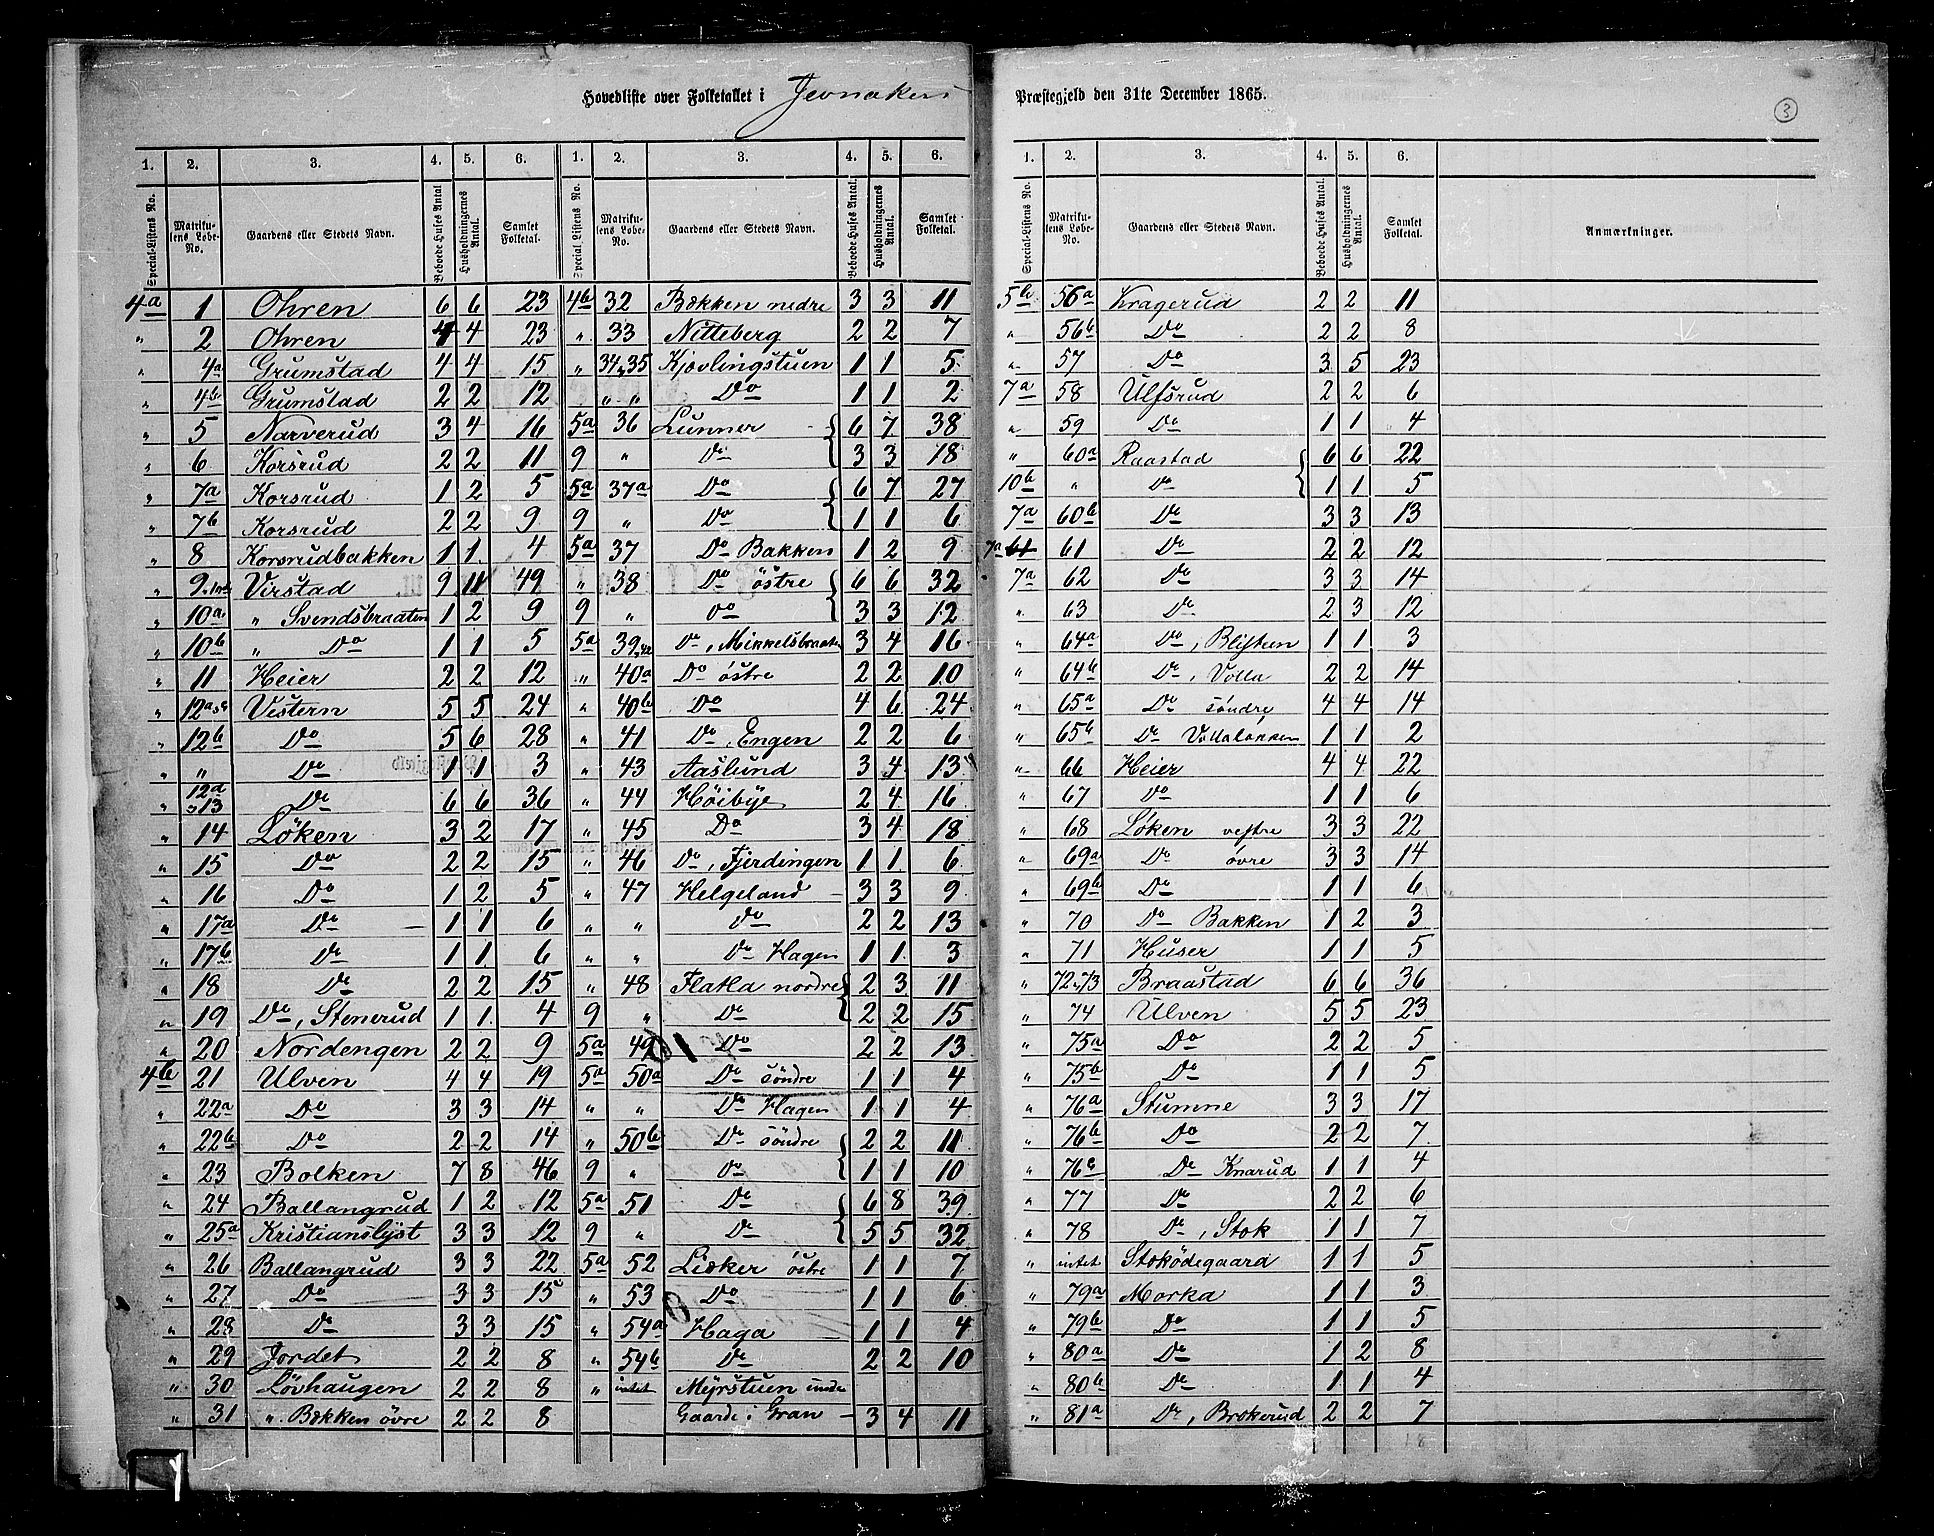 Hovedliste over Folketallet i Jevnakers Præstegjeld den 31te December 1865.
3
1. 2. 3. 4. 5. 6. 1. 2. 3. 4. 5. 6.
Special-Listens No. Matrikulens Løbe-No. Gaardens eller Stedets Navn. Beboede Huses Antal Husholdningernes Antal. Samlet Folketal. Special Listens No. Matrikulens Løbe-No. Gaardens eller Stedets Navn. Beboede Huses Antal. Husholdningernes Antal. Samlet Folketal.
4a 1 Ohren 6 6 23 4b 32 Bækken nedre 3 3 11
" 2 Ohren 4 4 23 " 33 Nitteberg 2 2 7
" 4a Grumstad 4 4 15 " 34, 35 Kjøvlingstuen 1 1 5
" 4b Grumstad 2 2 12 " " " Do 1 1 2
" 5 Narverud 3 4 16 5a 36 Lunner 6 7 38
" 6 Korsrud 2 2 11 9 " Do 3 3 18
" 7a Korsrud 1 2 5 5a 37a Do 6 7 27
" 7b Korsrud 2 2 9 9 " Do 1 1 6
" 8 Korsrudbakken 1 1 4 5a 37 Do Bakken 1 2 9
" 9 Virstad 9 11 49 " 38 Do östre 6 6 32
" 10a " Svendsbraaten 1 2 9 9 " Do 3 3 12
" 10b " Do 1 1 5 5a 39 Do, Mikkelsbraaten 3 4 16
" 11 Heier 2 2 12 " 40a Do östre 2 2 10
" 12a Vestern 5 5 24 " 40b Do 4 6 24
" 12b Do 5 6 28 " 41 Do, Engen 2 2 6
" " Do 1 1 3 " 43 Aaslund 3 4 13
" 12d 13 Do 6 6 36 " 44 Höibye 2 4 16
" 14 Löken 3 2 17 " 45 Do 3 4 18
" 15 Do 2 2 15 " 46 Do, Fjerdingen 1 1 6
" 16 Do 1 2 5 " 47 Helgeland 3 3 9
" 17a Do 1 1 6 " " Do 2 2 13
" 17b Do 1 1 6 " " Do Hagen 1 1 3
" 18 Do 2 2 15 " 48 Flatla nordre 2 3 11
" 19 Do, Stenerud 1 1 4 9 " Do 2 2 15
" 20 Nordengen 2 2 9 5a 49 Do 2 2 13
4b 21 Ulven 4 4 19 5a 50a Do söndre 1 1 4
" 22a Do 3 3 14 " " Do Hagen 1 1 4
" 22b Do 2 2 14 " 50b Do söndre 2 2 11
" 23 Bolken 7 8 46 9 " Do 1 1 10
" 24 Ballangrud 1 2 12 5a 51 Do 6 8 39
" 25a Kristianslyst 3 3 12 9 " Do 5 5 32
" 26 Ballangrud 3 3 22 5a 52 Lieker östre 1 1 7
" 27 Do 3 3 15 " 53 Do 1 1 6
" 28 Do 3 3 15 " 54a Haga 1 1 4
" 29 Jordet 2 2 8 " 54b Do 2 2 10
" 30 Lövhaugen 2 2 8 " intet Myrstuen under
" 31 " Bækken övre 2 2 8 Gaarde i Gran 3 4 11
1. 2. 3. 4. 5. 6.
Special-Listens No. Matrikulens Løbe-No. Gaardens eller Stedets Navn. Beboede Huses Antal. Husholdningernes Antal. Samlet Folketal. Anmærkninger.
5b 56a Kragerud 2 2 11
" 56b Do 2 2 8
" 57 Do 3 5 23
7a 58 Ulfsrud 2 2 6
" 59 Do 1 1 4
" 60a Raastad 6 6 22
10b " Do 1 1 5
7a 60b Do 3 3 13
7a 61 61 Do 2 2 12
7a 62 Do 3 3 14
" 63 Do 2 3 12
" 64a Do, Blistuen 1 1 3
" 64b Do, Volla 2 2 14
" 65a Do söndre 4 4 14
" 65b Do Vollalökken 1 1 2
" 66 Heier 4 4 22
" 67 Do 1 1 6
" 68 Löken vestre 3 3 22
" 69a Do övre 3 3 14
" 69b Do 1 1 6
" 70 Do Bakken 1 2 3
" 71 Huser 1 1 5
" 72, 73 Braastad 6 6 36
" 74 Ulven 5 5 23
" 75a Do 2 2 5
" 75b Do 1 1 5
" 76a Stumne 3 3 17
" 76b Do 2 2 7
" 76c Do Knarud 1 1 4
" 77 Do 2 2 6
" 78 Do, Stok 1 1 7
" intet Stoködegaard 1 1 5
" 79a Morka 1 1 3
" 79b Do 1 1 5
" 80a Do 1 2 8
" 80b Do 1 1 4
" 81a Do, Brokerud 2 2 7